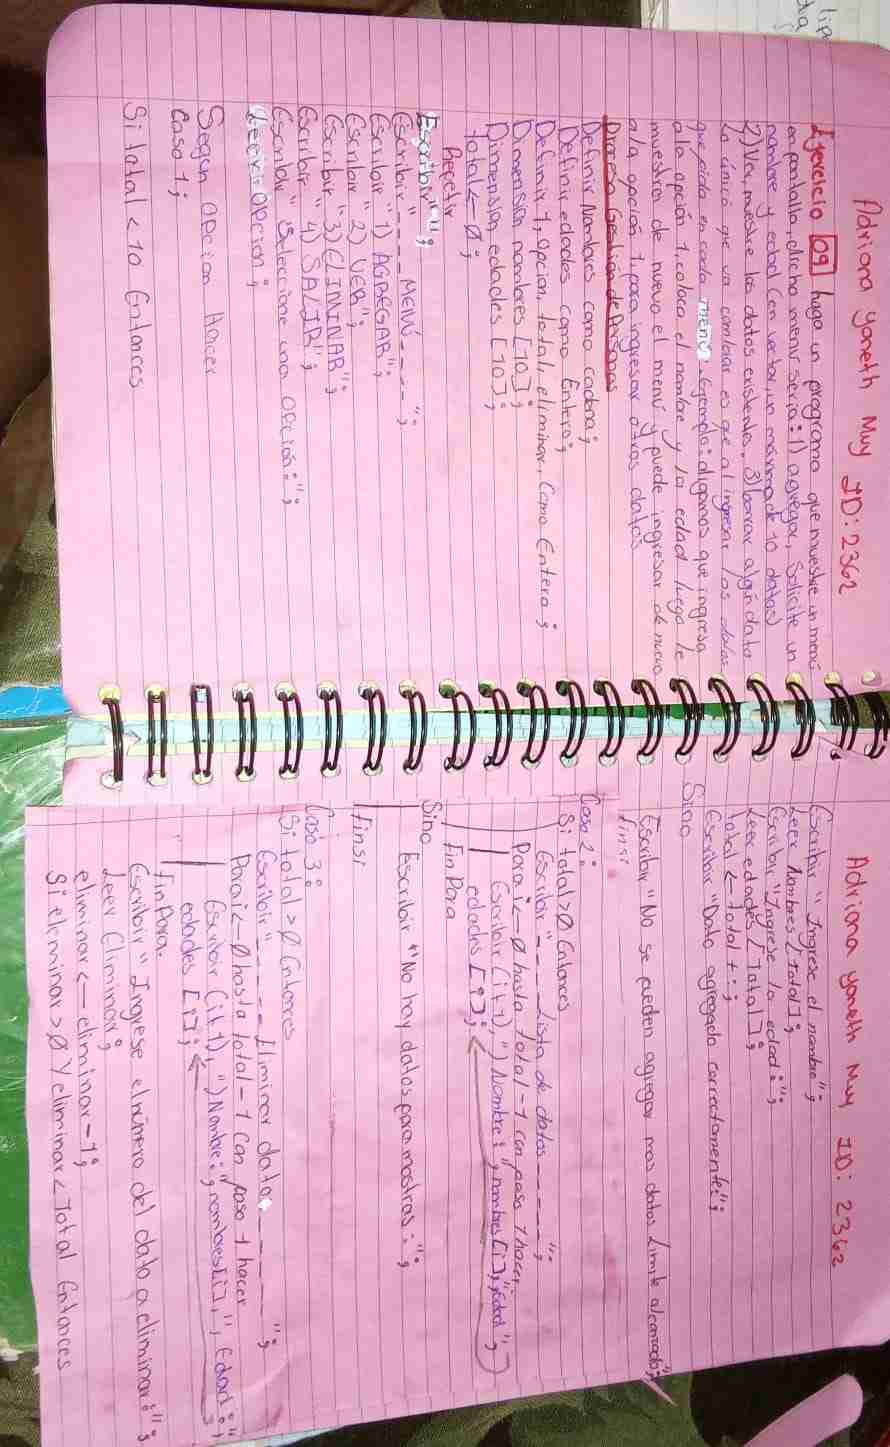 Adriana Yoneth Muy ID: 2362
Ejercicio 09 haga un programa que muestre un menú
en pantalla, dicho menú sería: 1) agregar, Solicite un
nombre y edad (en vector, un máximo de 10 datos)
2) Ver, muestre los datos existentes. 3) borrar algún dato
Lo único que va cambiar es que al ingresar los datos
que pida en cada menú. Ejemplo: digamos que ingresa
ala opción 1, coloco el nombre y la edad luego le
muestra de nuevo el menú y puede ingresar de nuevo
ala opción 1, para ingresar otros datos
Proceso Gestion de Personas
Definir Nombres como cadena;
Definir edades como Entero;
Definir i, opcion, total, eliminar, Como Entero;
Dimension nombres [10];
Dimension edades [10];
total <- 0;
Repetir
Escribir "";
Escribir "---- MENÚ ----";
Escribir "1) AGREGAR";
Escribir "2) VER";
Escribir "3) ELININAR";
Escribir "4) SALIR";
Escribir "Seleccione una opción:";
Leer opcion;
Segun opcion Hacer
Caso 1;
Si total < 10 Entonces
Adriana Yoneth Muy ID: 2362
Escribir "Ingrese el nombre";
Leer Nombres [total];
Escribir "Ingrese la edad:";
Leer edades [Total];
total <- total + ;
Escribir "Dato agregado correctamente:";
Sino
Escribir "No se pueden agregar mas datos Limite alcanzado";
finsi
Caso 2:
Si total > 0 Entonces
Escribir "---- Lista de datos ----";
Para i <- 0 hasta total - 1 con paso 1 hacer
Escribir (i+1), ") Nombre: ", nombres [i], "Edad",
edades [i];
Fin Para
Sino
Escribir "No hay datos para mostras:";
finsi
Caso 3:
Si total > 0 Entonces
Escribir "----- Eliminar dato -----";
Para i <- 0 hasta total - 1 con paso 1 hacer
Escribir (i+1), ") Nombre:", nombres [i], ", Edad:",
edades [i];
fin Para.
Escribir "Ingrese el número del dato a eliminar:";
Leer Eliminar;
eliminar <- eliminar - 1;
Si eleminar > 0 Y eliminar < Total Entonces